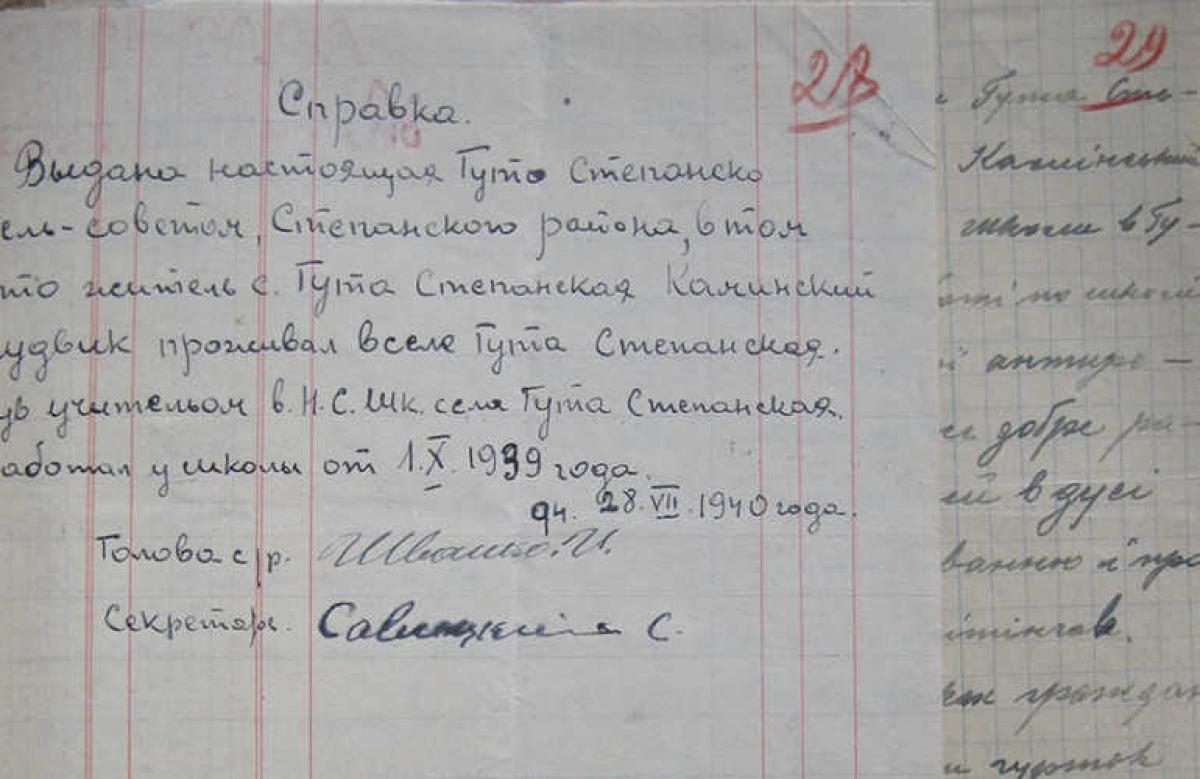 28
Справка.
Выдана настоящая Гуто Степанско
ель-советом, Степанского района, в том
то житель с. Гута Степанская Каминский
удвик проживал в селе Гута Степанская.
ув учительом в. Н.С.Шк. села Гута Степанская.
аботал у школы от 1.X.1939 года.
дч. 28.VII.1940 года.
Голова с/р. Ивашко. И.
Секретарь. С.
29
Гута Сте-
Камінський
школи в Гу-
по школі
антире-
добре ра-
ей в дусі
ванню й пр
ітінгав.
як граждан
и гурток